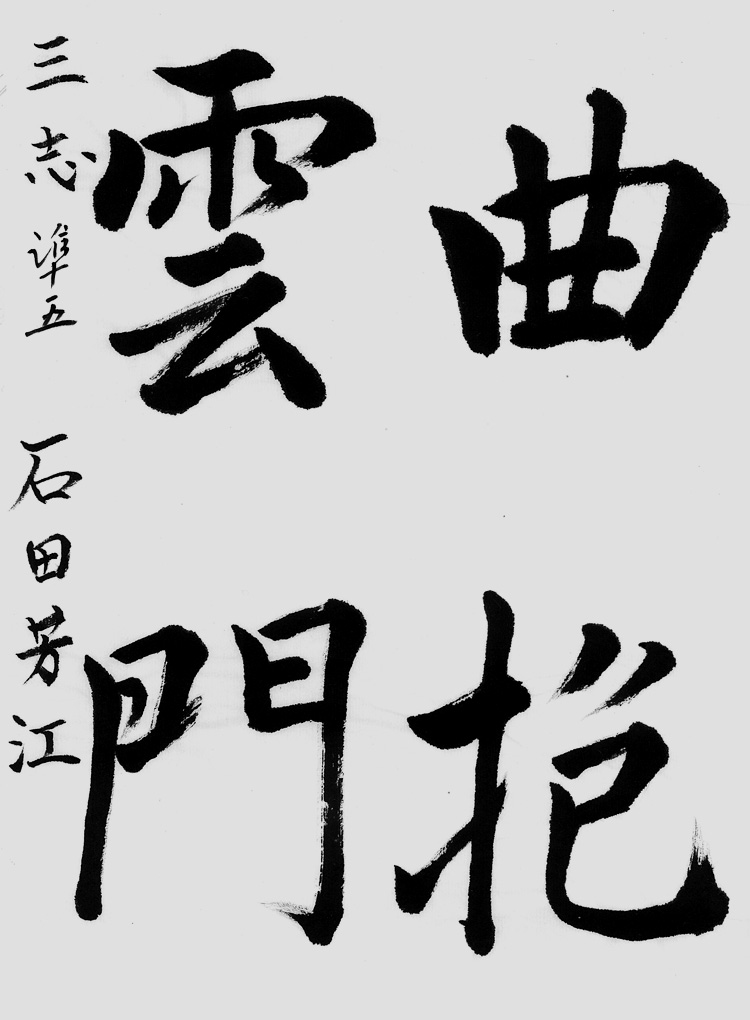 曲抱
雲門
三志準五 石田芳江